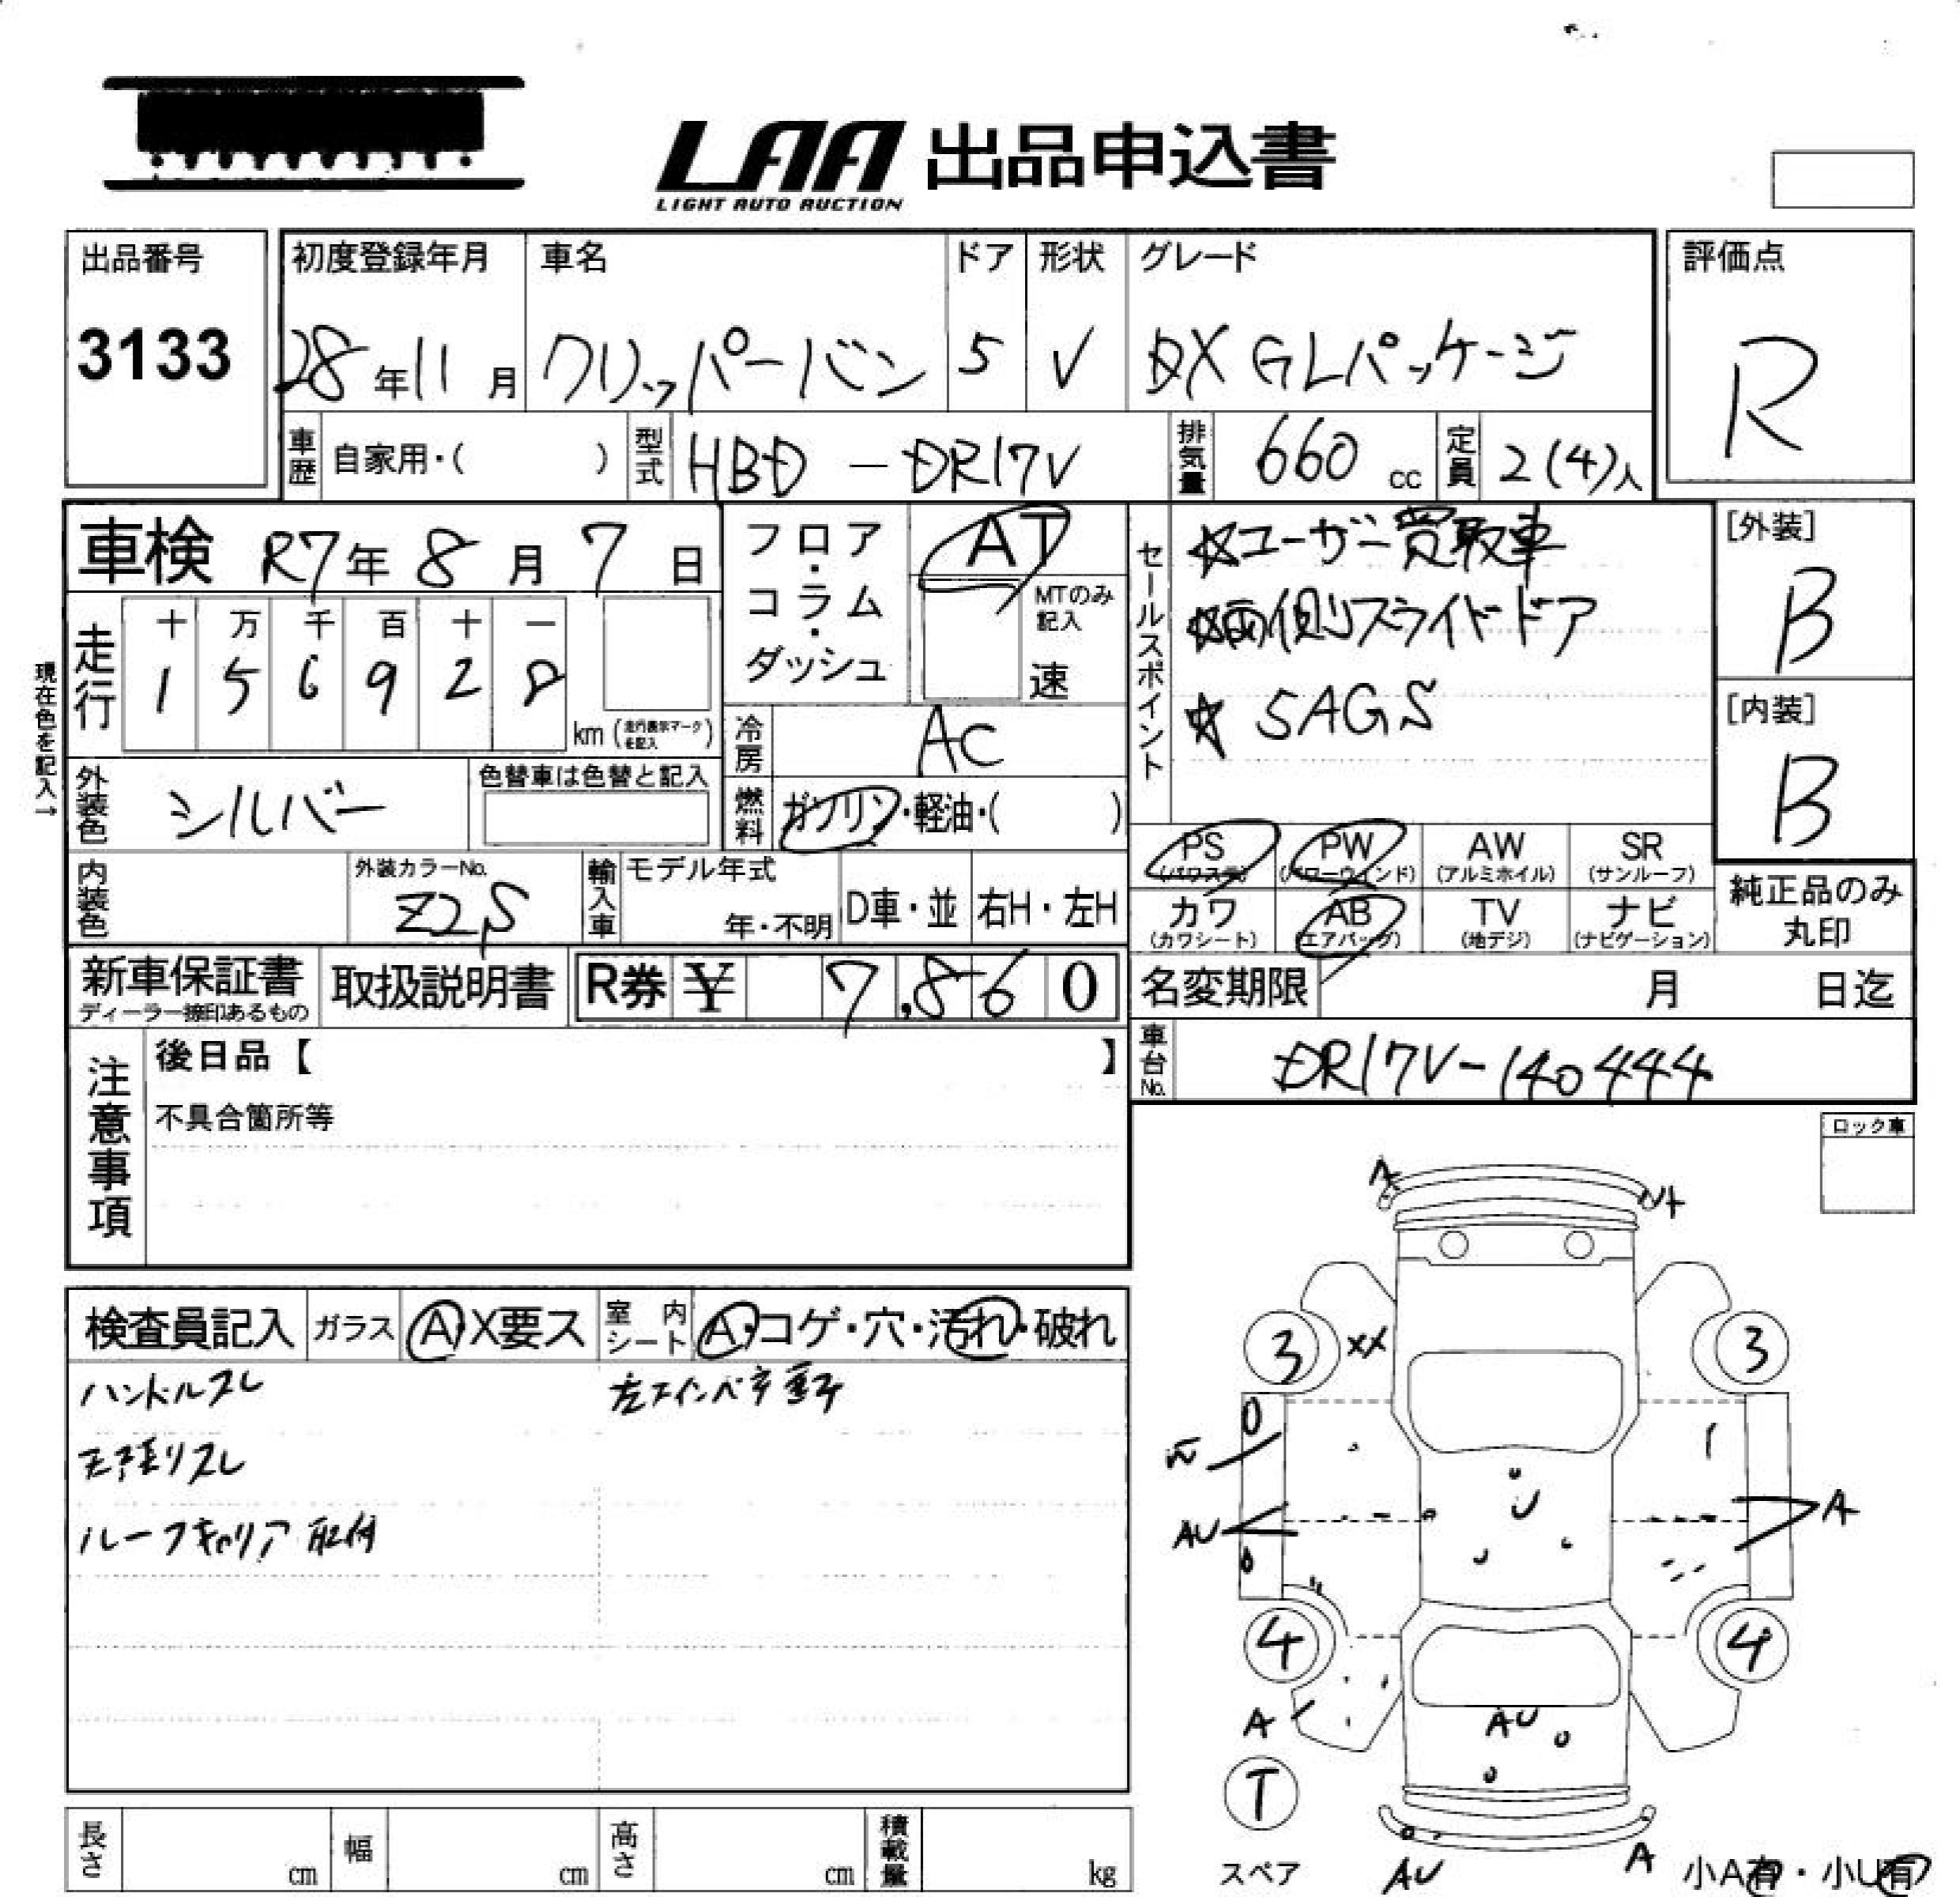 LAA 出品申込書
LIGHT AUTO AUCTION
出品番号
3133
初度登録年月
28年11月
車名
クリッパーバン
ドア
5
形状
V
グレード
DX GLパッケージ
評価点
R
車歴 自家用・( )
型式 HBD-DR17V
排気量 660 cc
定員 2(4)人
車検 R7年8月7日
フロア・コラム・ダッシュ
AT
MTのみ記入
速
セールスポイント
☆ユーザー買取車
☆両側スライドドア
☆5AGS
[外装]
B
[内装]
B
現在色を記入→
走行
十 万 千 百 十 一
1 5 6 9 2 8
km(走行表示マークを記入)
冷房 AC
燃料 ガソリン・軽油・( )
外装色 シルバー
色替車は色替と記入
内装色
外装カラーNo.
Z2S
輸入車
モデル年式
年・不明
D車・並
右H・左H
PS (パワステ)
PW (パワーウインド)
AW (アルミホイル)
SR (サンルーフ)
カワ (カワシート)
AB (エアバッグ)
TV (地デジ)
ナビ (ナビゲーション)
純正品のみ丸印
新車保証書
ディーラー捺印あるもの
取扱説明書
R券 ¥ 7,860
名変期限 月 日迄
車台No. DR17V-140444
注意事項
後日品【 】
不具合箇所等
ロック車
検査員記入
ガラス A・X要ス
室内シート A・コゲ・穴・汚れ・破れ
ハンドルスレ
ルーフキャリア取付
A
XX
3 3
A
AU
4 4
A
AU
T
スペア
AU
A
小A有・小U有
長さ cm
幅 cm
高さ cm
積載量 kg